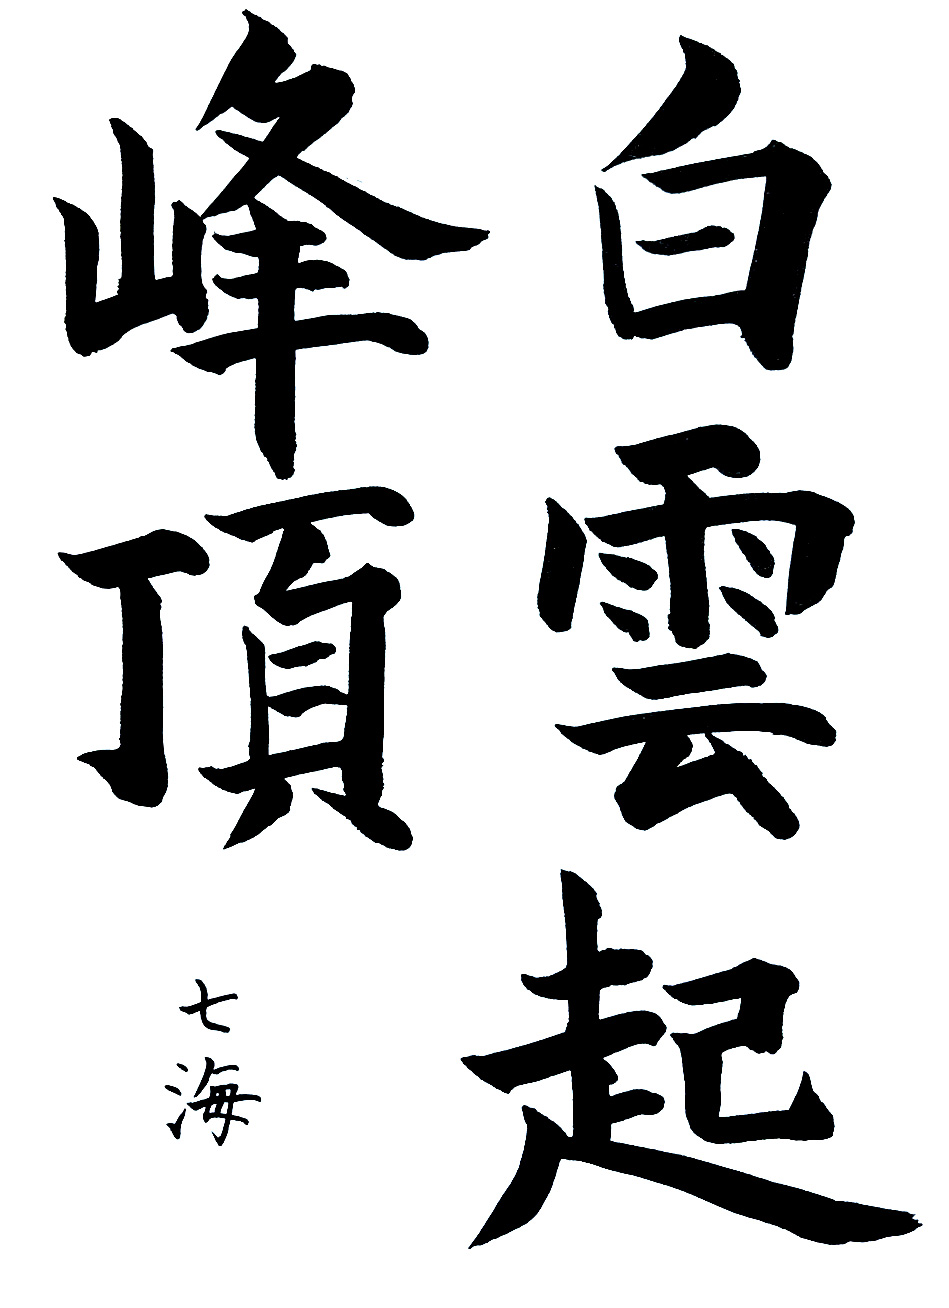 白雲起
峰頂
七海